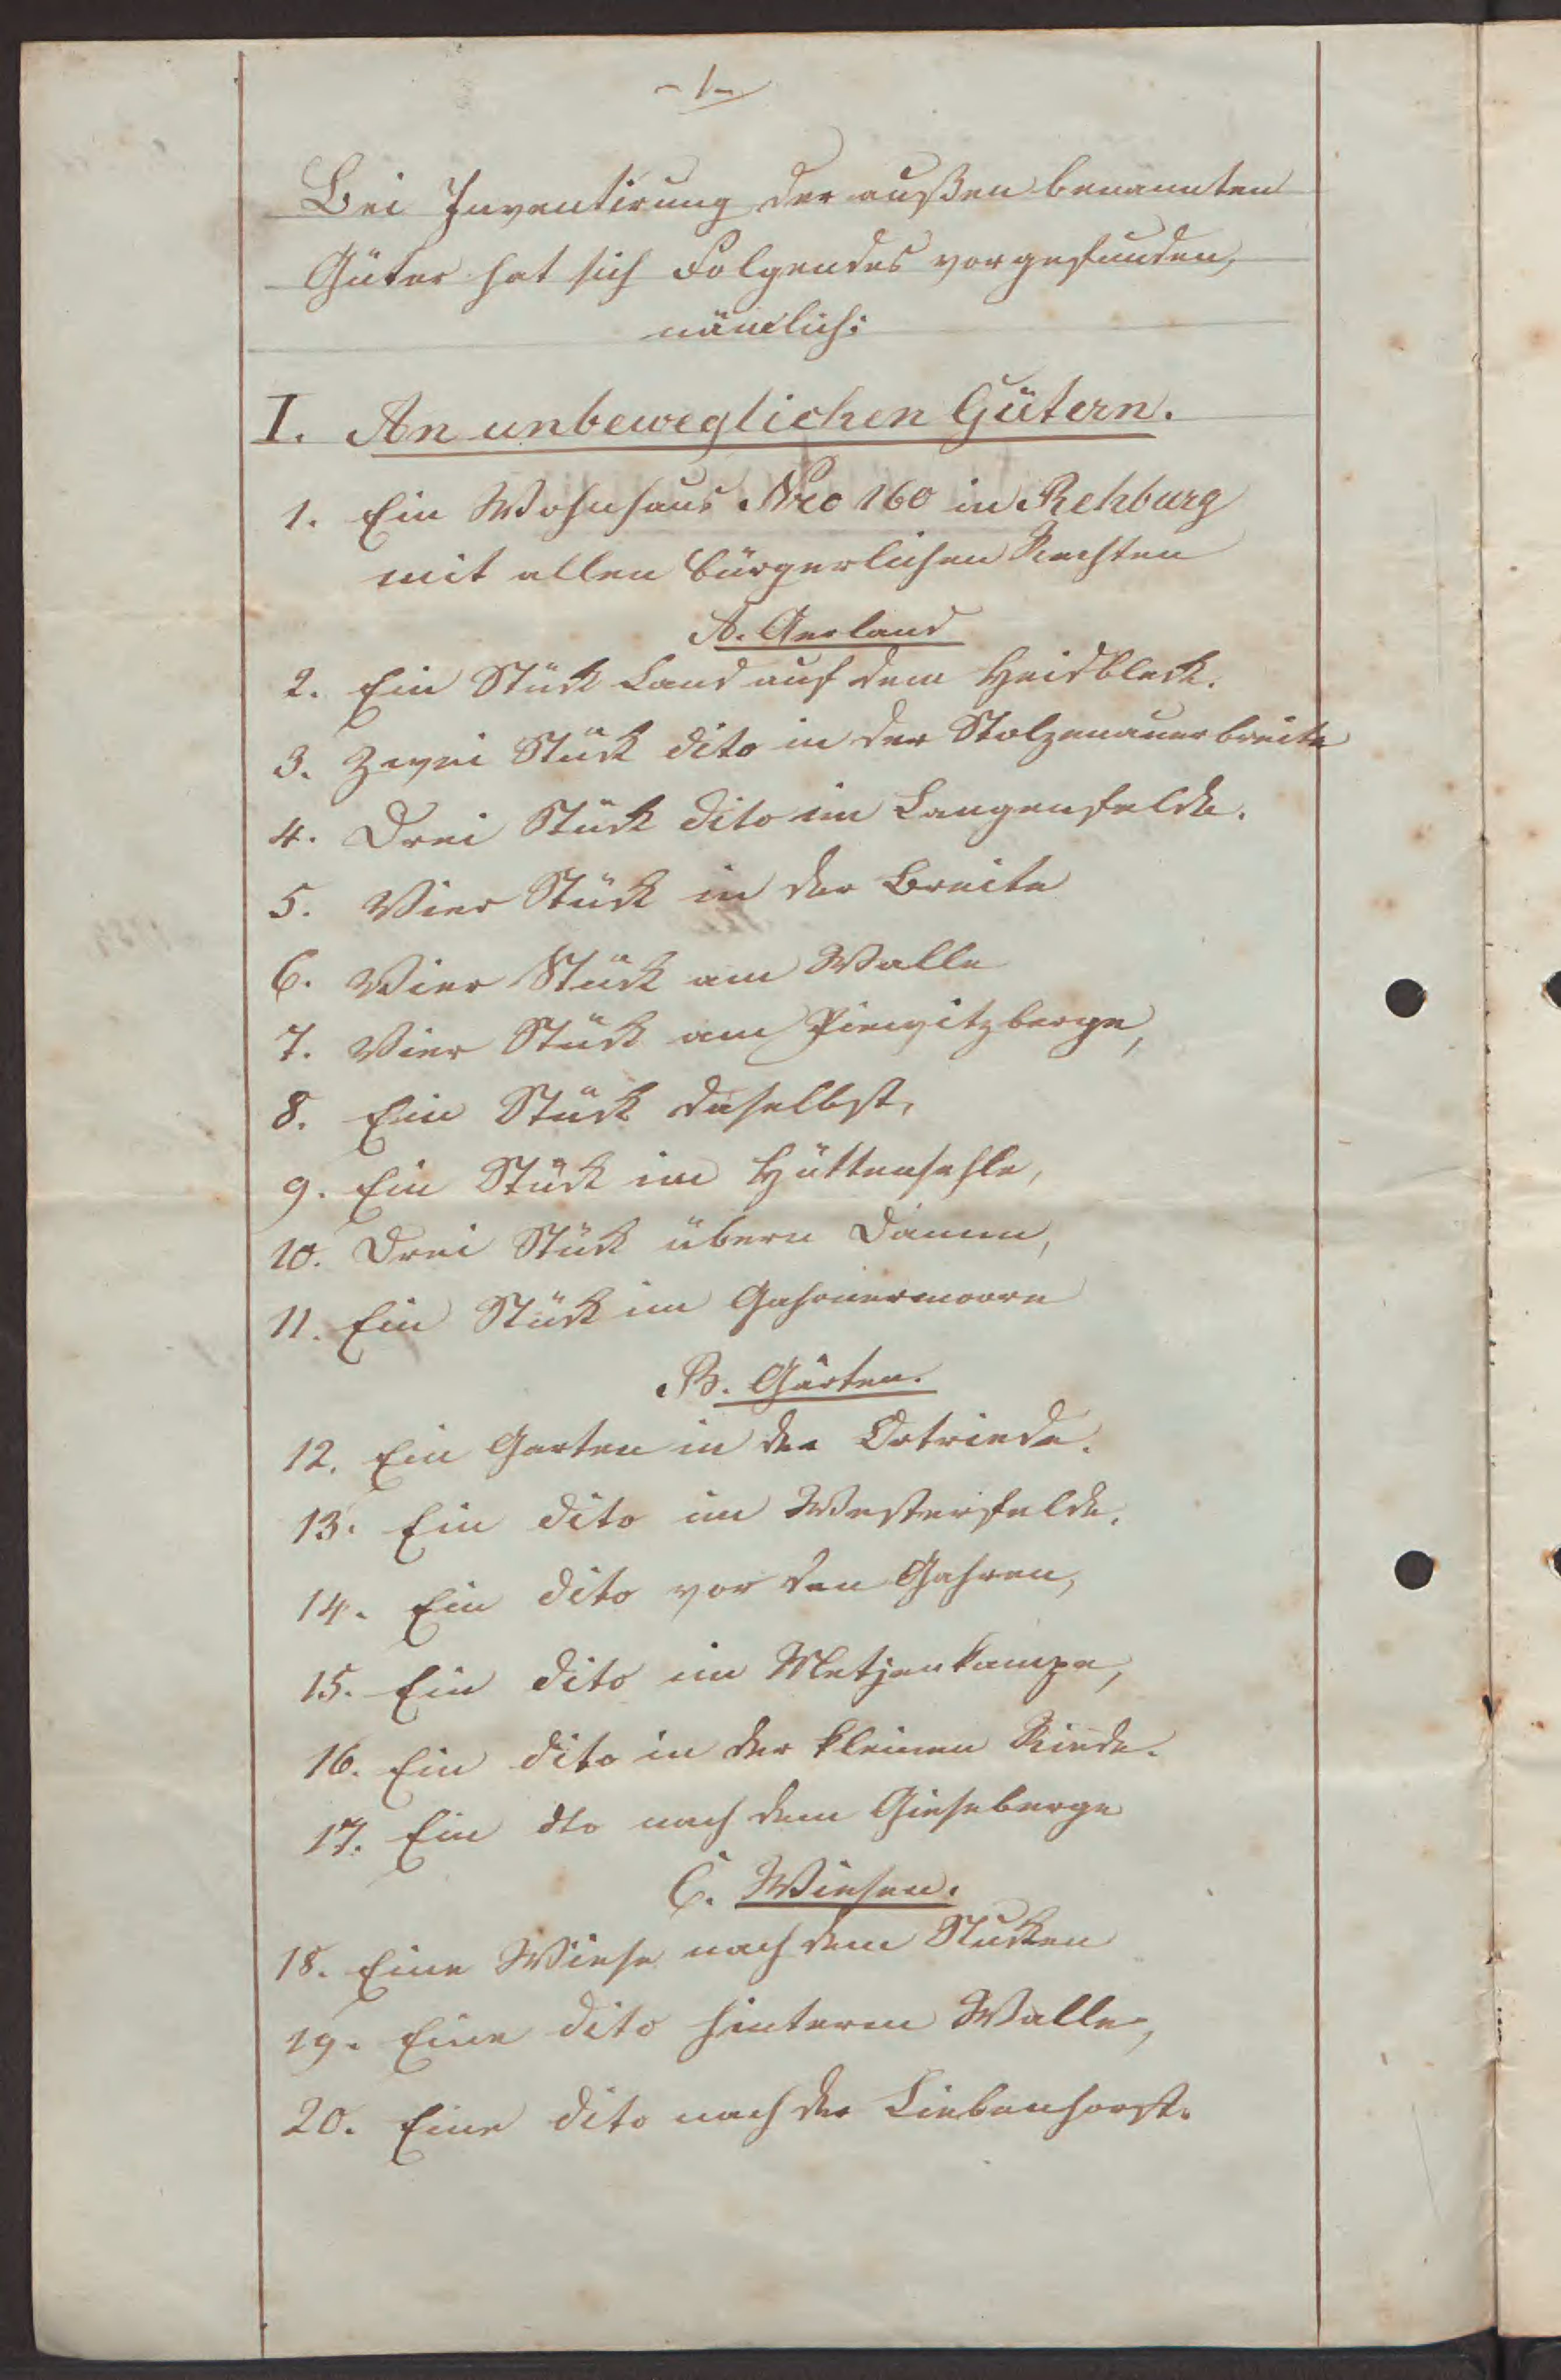 - 1 -
Bei Inventirung der außen benannten
Güter hat sich Folgendes vorgefunden,
nämlich:
I. An unbeweglichen Gütern.
1. Ein Wohnhaus Nro 160 in Rehburg
mit allen bürgerlichen Rechten
A. Aerland
2. Ein Stück Land auf dem Heidbleck.
3. Zwei Stück dito in der Stolzenauerbreite
4. Drei Stück dito im Langenfelde.
5. Vier Stück in der Breite
6. Vier Stück am Walle
7. Vier Stück am Piewitzberge,
8. Ein Stück daselbst,
9. Ein Stück im Hüttensehle,
10. Drei Stück übern Damm,
11. Ein Stück im Gahrnermoore
B. Gärten.
12. Ein Garten in der Ortriede.
13. Ein dito im Westerfelde.
14. Ein dito vor den Gahren,
15. Ein dito im Metjenkampe,
16. Ein dito in der kleinen Riede.
17. Ein dto nach dem Gieseberge
C. Wiesen.
18. Eine Wiese nach dem Stucken
19. Eine dito hinterm Walle,
20. Eine dito nach der Liebenhorst.